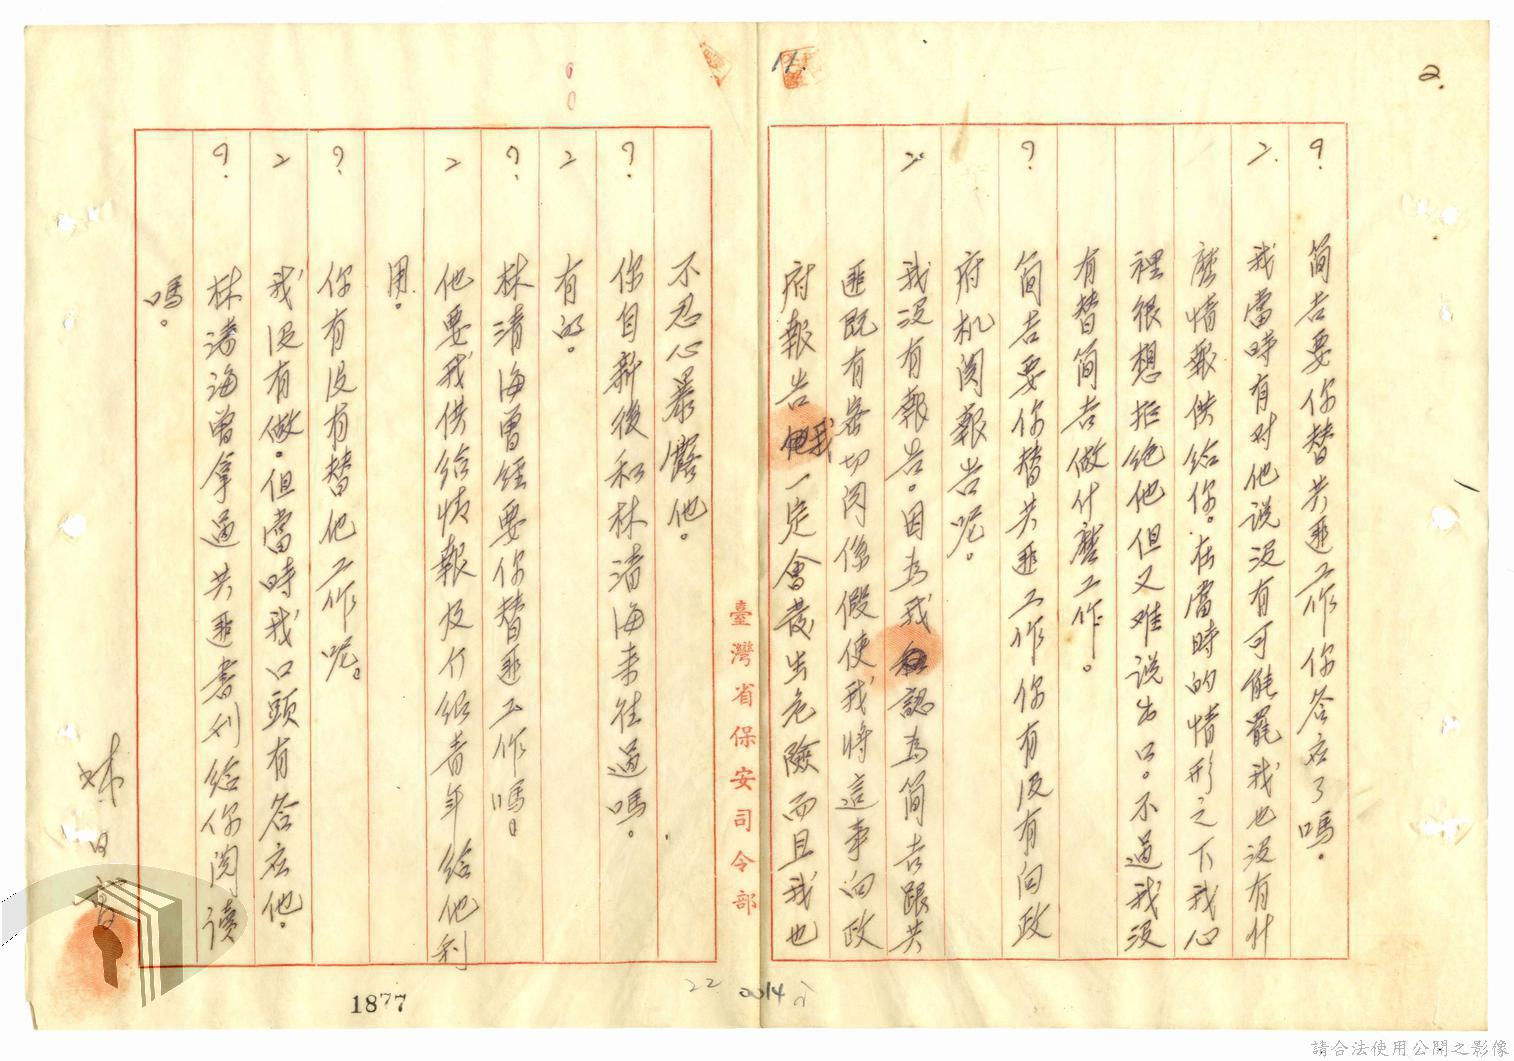 2.
? 简吉要你替共匪工作你答应了嗎。
2. 我當時有对他说没有可能罷我也没有什
麽情報供给你。在當時的情形之下我心
裡很想拒绝他但又难说出口。不過我没
有替简吉做什麽工作。
? 简吉要你替共匪工作你有没有向政
府机関報告呢。
2 我没有報告。因為我認為简吉跟共
匪既有密切関係假使我将這事向政
府報告我一定會發生危險而且我也
11.
臺灣省保安司令部
不忍心暴露他。
? 你自新後和林清海来往過嗎。
2 有的。
? 林清海曾經要你替匪工作嗎。
2 他要我供给情報及介绍青年给他利
用。
? 你有没有替他工作呢。
2 我没有做。但當時我口頭有答应他。
? 林清海曾拿過共匪書刊给你閲读
嗎。
1877
22
0014
請合法使用公開之影像